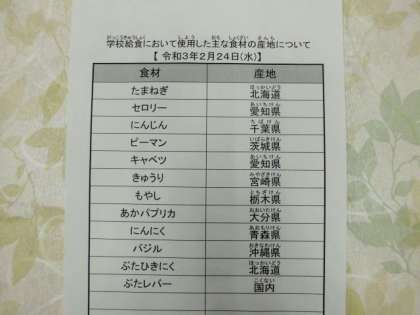 学校給食において使用した主な食材の産地について
【 令和3年2月24日(水)】
食材 産地
たまねぎ 北海道
セロリー 愛知県
にんじん 千葉県
ピーマン 茨城県
キャベツ 愛知県
きゅうり 宮崎県
もやし 栃木県
あかパプリカ 大分県
にんにく 青森県
バジル 沖縄県
ぶたひきにく 北海道
ぶたレバー 国内